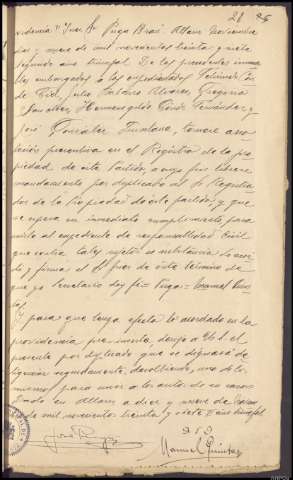 21 26
videncia "Juez Sr Puga Bruñ. Allariz
diez y nueve de mil novecientos treinta y siete
segundo año triunfal. De los presentes inmue
bles embargados a los expedientados
de Cid, Julio Antonio Alvarez, Gregorio
Gonzalez Hermenegildo Fernández y
José González tomese ano
tacion preventiva en el Registro de la pro
piedad de este Partido, a cuyo fin librese
mandamiento por duplicado al Sr Registra
dor de la Propiedad de este partido y que
se espera su inmediato cumplimiento, para
unirlo al expediente de responsabilidad Civil
que contra tales sujetos se substancia. Lo acor
dó y firma el Sr Juez de este término de
que yo Secretario doy fé = Puga = Manuel
Y para que tenga efecto lo acordado en la
providencia preinserta, dirijo a Vd. el
presente por duplicado que se dignará di
ligenciar seguidamente, devolviendo uno de los
mismos para unir a los autos de su razon
Dado en Allariz a diez y nueve de
de mil novecientos treinta y siete 2º año triunfal
José Puga
Manuel